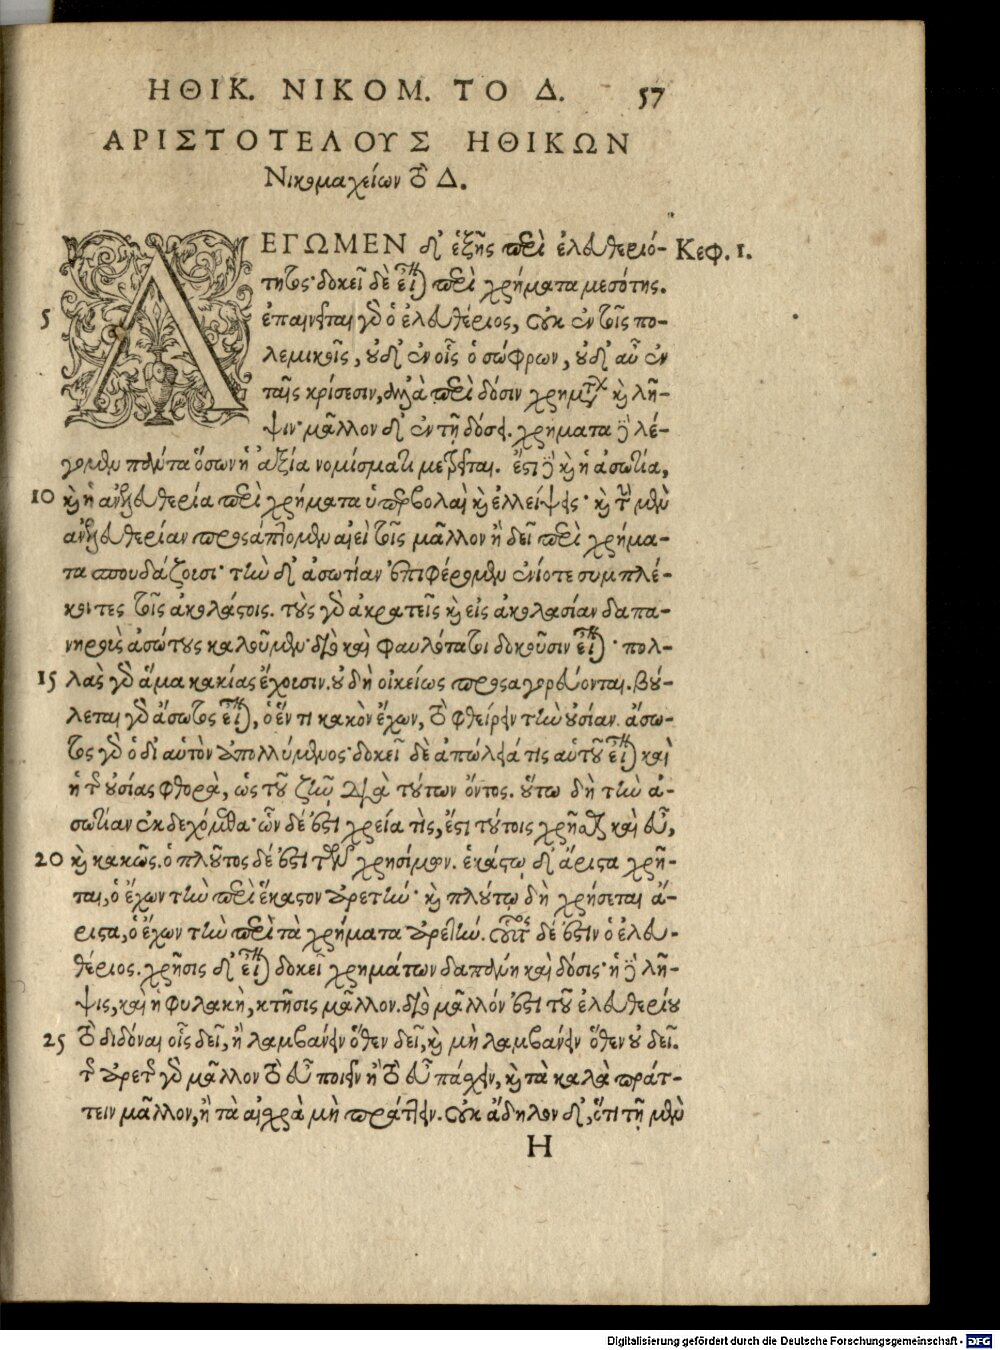 ΗΘΙΚ. ΝΙΚΟΜ. ΤΟ Δ. 57
ΑΡΙΣΤΟΤΕΛΟΥΣ ΗΘΙΚΩΝ
Νικομαχείων τὸ Δ.
ΛΕΓΩΜΕΝ δ' ἑξῆς περὶ ἐλευθεριό- Κεφ. 1.
τητος· δοκεῖ δὲ εἶναι περὶ χρήματα μεσότης.
5 ἐπαινεῖται γὰρ ὁ ἐλευθέριος, οὐκ ἐν τοῖς πο-
λεμικοῖς, οὐδ' ἐν οἷς ὁ σώφρων, οὐδ' αὖ ἐν
ταῖς κρίσεσιν, ἀλλὰ περὶ δόσιν χρημάτων καὶ λῆ-
ψιν· μᾶλλον δ' ἐν τῇ δόσει. χρήματα δὲ λέ-
γομεν πάντα ὅσων ἡ ἀξία νομίσματι μετρεῖται. ἔστι δὲ καὶ ἡ ἀσωτία,
10 καὶ ἡ ἀνελευθερία περὶ χρήματα ὑπερβολαὶ καὶ ἐλλείψεις· καὶ τὴν μὲν
ἀνελευθερίαν προσάπτομεν αἰεὶ τοῖς μᾶλλον ἢ δεῖ περὶ χρήμα-
τα σπουδάζουσι· τὴν δ' ἀσωτίαν ἐπιφέρομεν ἐνίοτε συμπλέ-
κοντες τοῖς ἀκολάστοις. τοὺς γὰρ ἀκρατεῖς καὶ εἰς ἀκολασίαν δαπα-
νηροὺς ἀσώτους καλοῦμεν· διὸ καὶ φαυλότατοι δοκοῦσιν εἶναι· πολ-
15 λὰς γὰρ ἅμα κακίας ἔχουσιν. οὐ δὴ οἰκείως προσαγορεύονται. βού-
λεται γὰρ ἄσωτος εἶναι, ὁ ἕν τι κακὸν ἔχων, τὸ φθείρειν τὴν οὐσίαν. ἄσω-
τος γὰρ ὁ δι αὑτὸν ἀπολλύμενος· δοκεῖ δὲ ἀπώλειά τις αὑτοῦ εἶναι καὶ
ἡ τῆς οὐσίας φθορὰ, ὡς τοῦ ζῆν διὰ τούτων ὄντος. οὕτω δὴ τὴν ἀ-
σωτίαν ἐκδεχόμεθα· ὧν δέ ἐστι χρεία τις, ἔστι τούτοις χρῆσθαι καὶ εὖ,
20 καὶ κακῶς. ὁ πλοῦτος δέ ἐστι τῶν χρησίμων. ἑκάστῳ δ' ἄριστα χρῆ-
ται, ὁ ἔχων τὴν περὶ ἕκαστον ἀρετήν· καὶ πλούτῳ δὴ χρήσεται ἄ-
ριστα, ὁ ἔχων τὴν περὶ τὰ χρήματα ἀρετήν. οὗτος δέ ἐστιν ὁ ἐλευ-
θέριος. χρῆσις δ' εἶναι δοκεῖ χρημάτων δαπάνη καὶ δόσις· ἡ δὲ λῆ-
ψις, καὶ ἡ φυλακὴ, κτῆσις μᾶλλον. διὸ μᾶλλόν ἐστι τοῦ ἐλευθερίου
25 τὸ διδόναι οἷς δεῖ, ἢ λαμβάνειν ὅθεν δεῖ, καὶ μὴ λαμβάνειν ὅθεν οὐ δεῖ.
τῆς ἀρετῆς γὰρ μᾶλλον τὸ εὖ ποιεῖν ἢ τὸ εὖ πάσχειν, καὶ τὰ καλὰ πράτ-
τειν μᾶλλον, ἢ τὰ αἰσχρὰ μὴ πράττειν. οὐκ ἄδηλον δ', ὅτι τῇ μὲν
Η
Digitalisierung gefördert durch die Deutsche Forschungsgemeinschaft - DFG